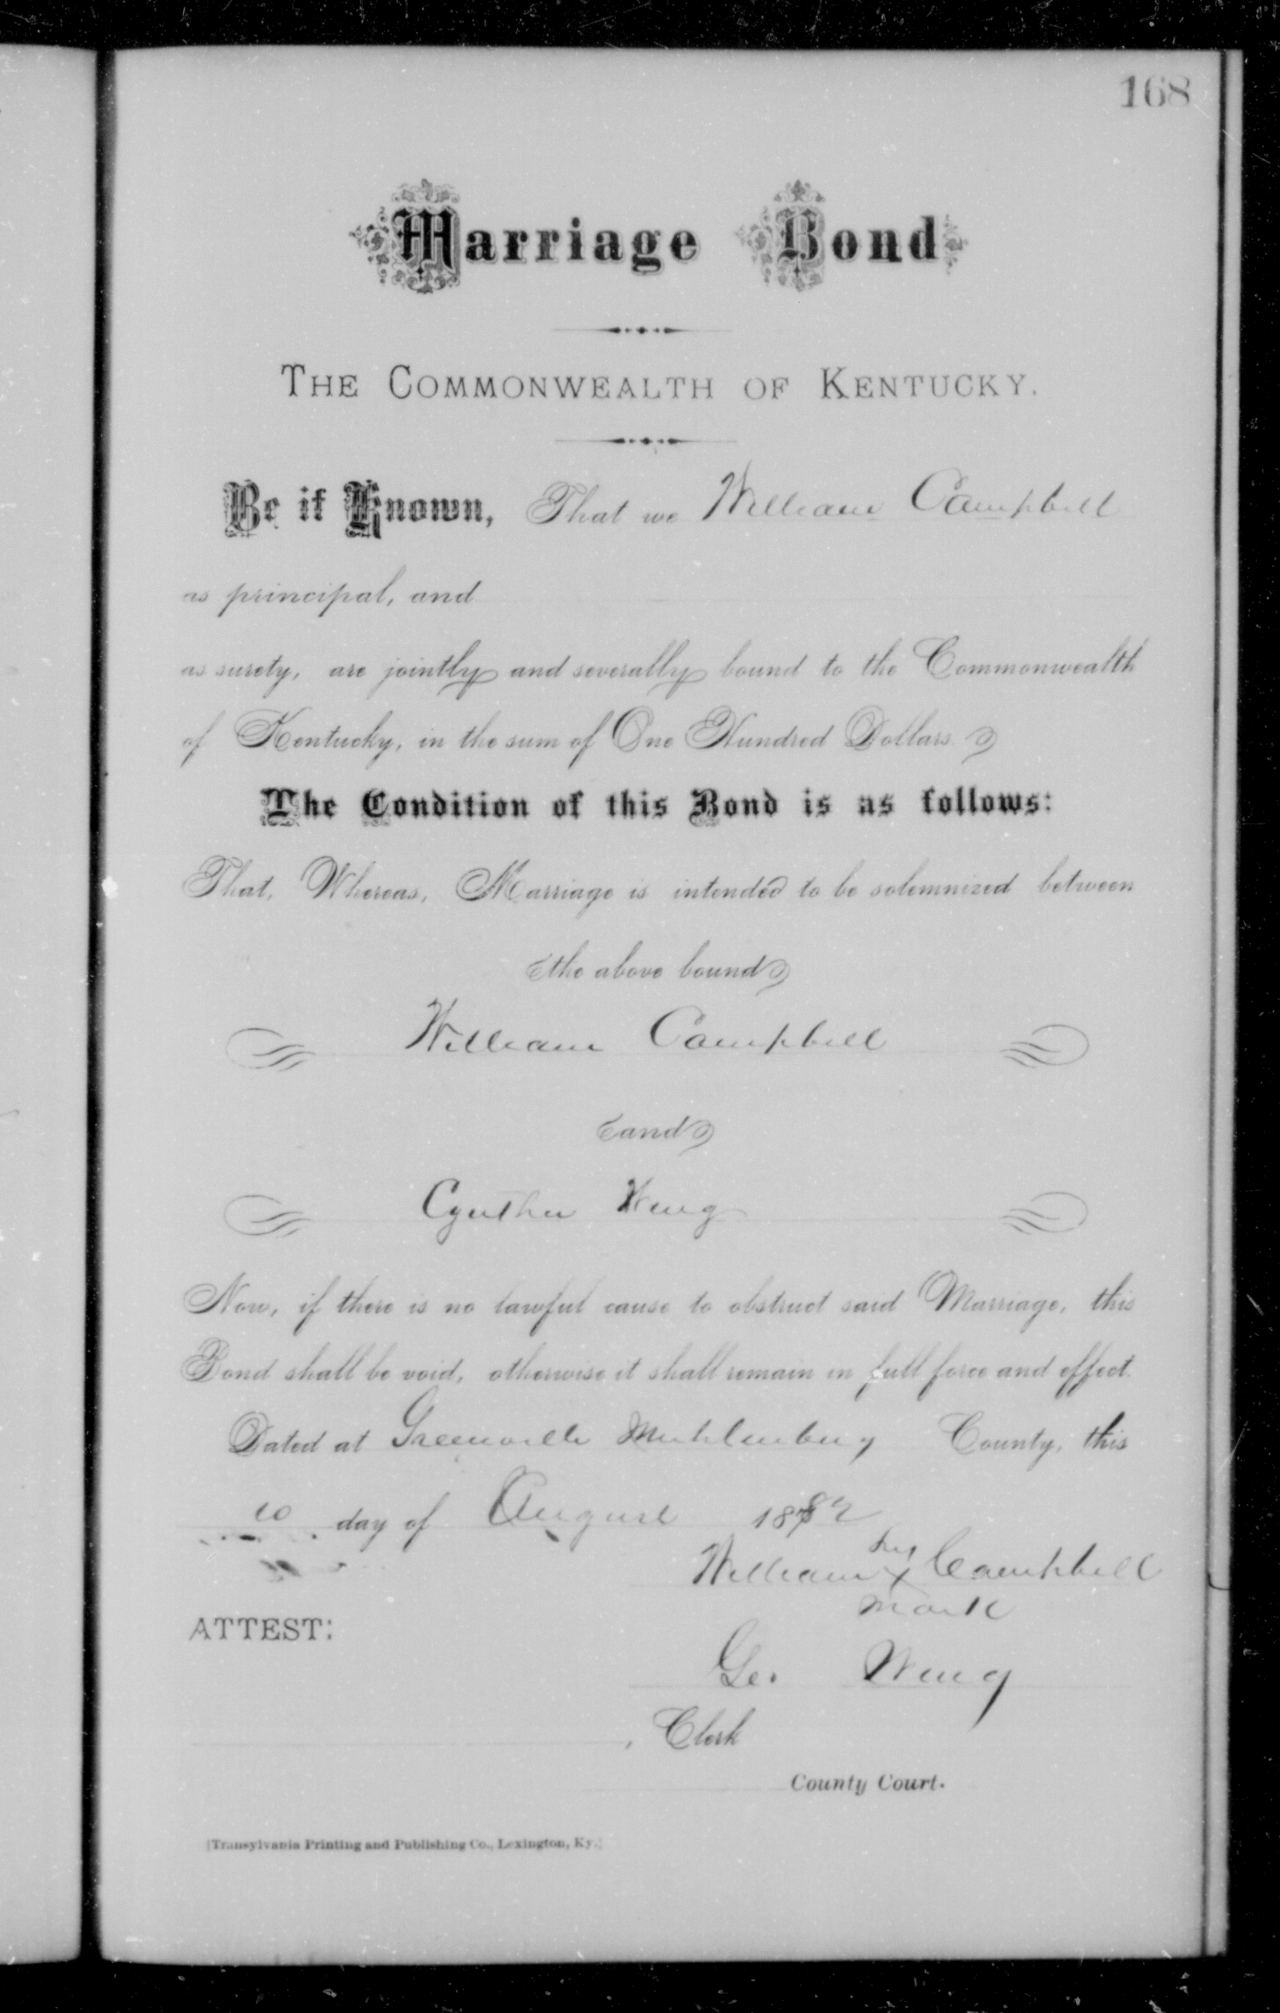 168
Marriage Bond
THE COMMONWEALTH OF KENTUCKY.
Be it Known, That we William Campbell
as principal, and
as surety, are jointly and severally bound to the Commonwealth
of Kentucky, in the sum of One Hundred Dollars.
The Condition of this Bond is as follows:
That, Whereas, Marriage is intended to be solemnized between
the above bound
William Campbell
and
Cynthia Wing
Now, if there is no lawful cause to obstruct said Marriage, this
Bond shall be void, otherwise it shall remain in full force and effect.
Dated at Greenville Muhlenburg County, this
10 day of August 1882
William his x mark Campbell
ATTEST:
Geo. Wing
, Clerk
County Court.
[Transylvania Printing and Publishing Co., Lexington, Ky.]